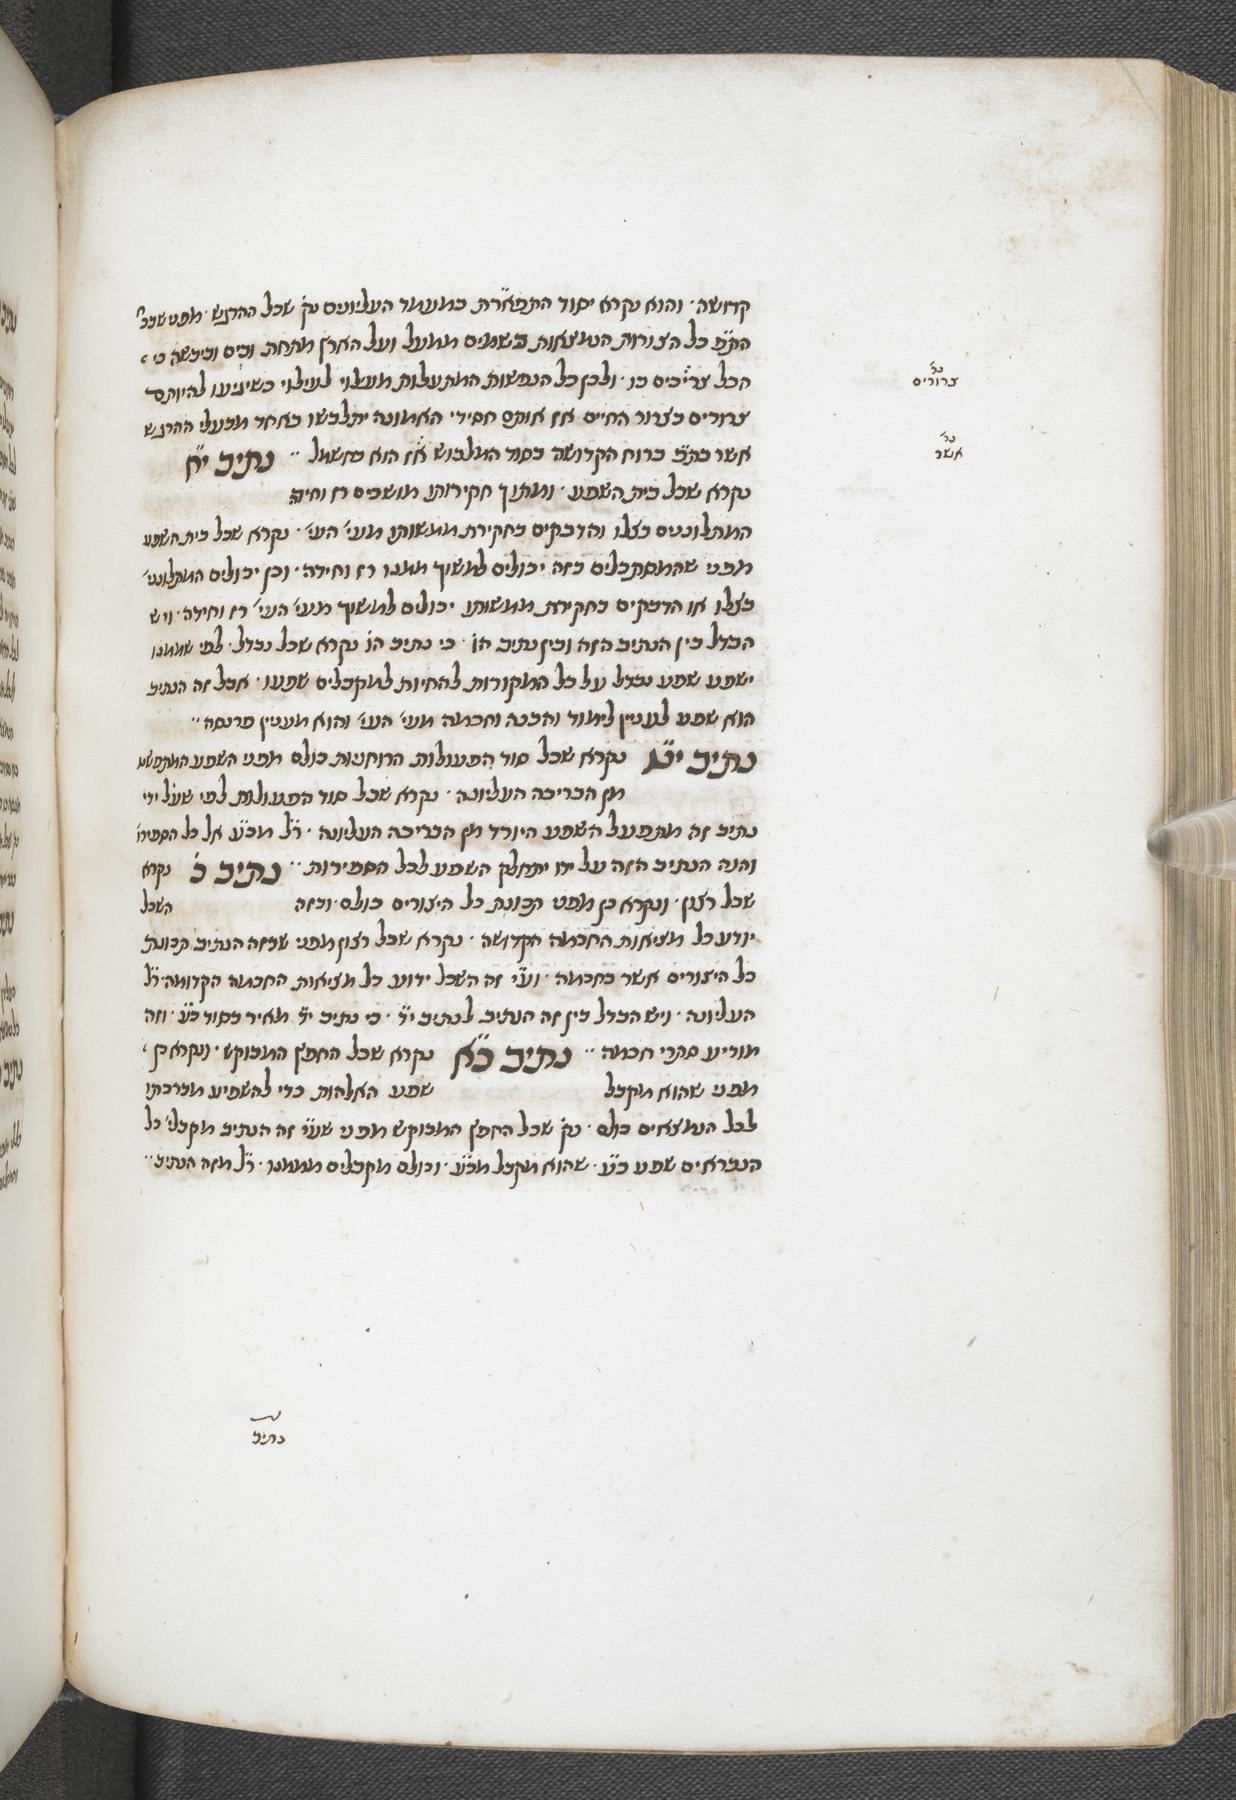 קדושה · והוא נקרא יסוד התפארת במעמד העליונים נק' שכל ההרגש · מפני שבכ'
הנ"ם כל הצורות הנמצאות בשמים ממעל ועל הארץ מתחת וביס וביבשה כי
הכל צריכים בו · ולכן כל הנפשות המתעלות מעלוי לעילוי כשיגיעו להיותם
צרורים בצרור החיים אז אותם חסידי האמונה יתלבשו כאחד מבעלי ההרגש
אשר ברוח הקדושה בסוד המלבוש אז הוא כחשמל ·· נתיב י"ח
נקרא שכל בית השפע · ומתוך חקירותו מושכים רז וחידה
המתלוננים בצלו והדבקים בחקירת ממשותו מעי' העי' · נקרא שכל בית השפע
מפני שהמסתכלים בזה יכולים למשוך ממנו רז וחידה · וכן יכולים המתלונני'
בצלו או הדבקים בחקירת ממשותו יכולים למשוך מעי' העי' רז וחידה · ויש
הבדל בין הנתיב הזה ובין נתיב הו' · כי נתיב הו' נקרא שכל נבדל · לפי שממנו
ישפע שפע נבדל על כל המקורות להחיות למקבלים שפעו · אבל זה הנתיב
הוא שפע לענין לימוד והבנה וחכמה מעי' העי' והוא מענין פרנסה ··
נתיב י"ט נקרא שכל סוד הפעולות הרוחניות כולם מפני השפע המתפשט
מן הבריכה העליונה · נקרא שכל סוד הפעולות לפי שעל ידי
נתיב זה מתפעל השפע היורד מן הבריכה העליונה · ר"ל מכ"ע אל כל הספירו'
והנה הנתיב הזה על ידו יתחלק השפע לכל הספירות ·· נתיב כ' נקרא
שכל רצון · ונקרא כן מפני תכונת כל היצורים כולם · ובזה השכל
יודע כל מציאות החכמה הקדושה · נקרא שכל רצון מפני שבזה הנתיב תכונת
כל היצורים אשר בחכמה · וע"י זה השכל ידוע כל מציאות החכמה הקדומה · ר"ל
העליונה · ויש הבדל בין זה הנתיב לנתיב י"ד · כי נתיב י"ד מאיר בסוד כ"ע · וזה
מודיע סתרי חכמה ·· נתיב כ"א נקרא שכל החפץ המבוקש · ונקרא כן
מפני שהוא מקבל שפע האלהות כדי להשפיע מברכתו
לכל הנמצאים כולם · נק' שכל החפץ המבוקש מפני שע"י זה הנתיב מקבלי' כל
הנבראים שפע כ"ע · שהוא מקבל מכ"ע · וכולם מקבלים ממנו · ר"ל מזה הנתיב ··
צרורים
אשר
נתיב